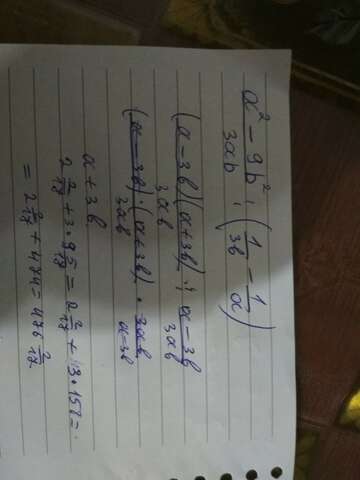 a² - 9b² / 3ab : (1/3b - 1/a)
(a - 3b)(a + 3b) / 3ab : a - 3b / 3ab
(a - 3b) · (a + 3b) / 3ab · 3ab / a - 3b
a + 3b
2 2/17 + 3 ·
= 2 2/17 + 474 = 476 2/17